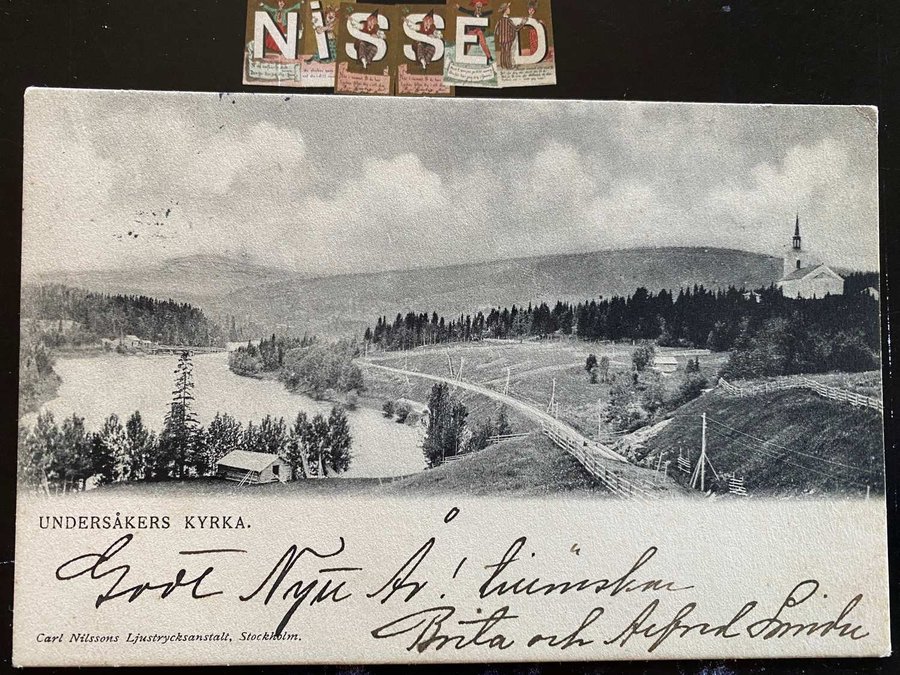 NiSSED
UNDERSÅKERS KYRKA.
Godt Nytt År! tillönskar
Brita och Alfred
Carl Nilssons Ljustrycksanstalt, Stockholm.